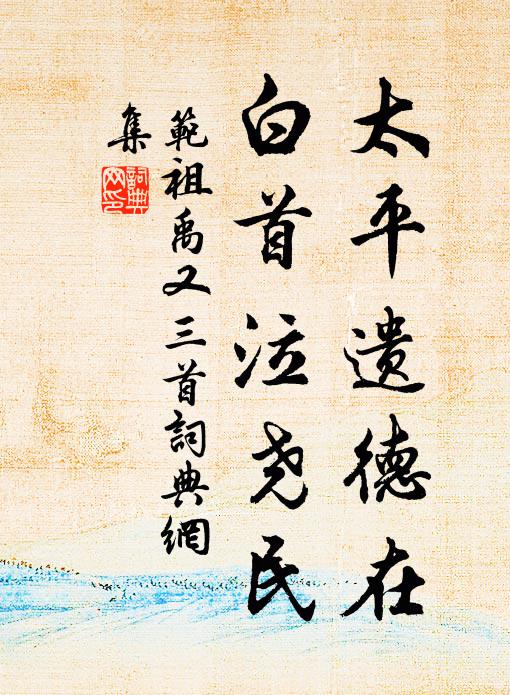 太平遗德在
白首泣尧民
範祖禹又三首詞典網
集
詞典网印